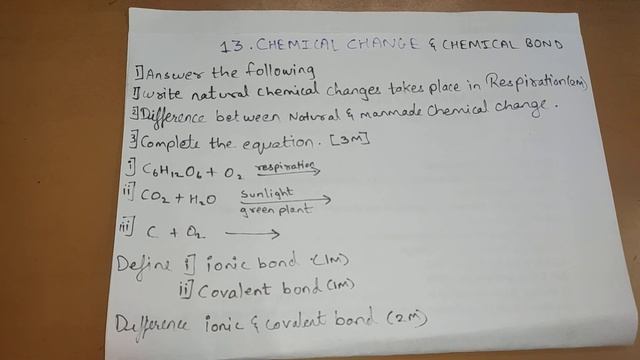 13. CHEMICAL CHANGE & CHEMICAL BOND
1] Answer the following
1] Write natural chemical changes takes place in Respiration (2m)
2] Difference between Natural & manmade Chemical change.
3] Complete the equation. [3M]
i] C6H12O6 + O2 respiration →
ii] CO2 + H2O sunlight →
green plant
iii] C + O2 →
Define i] ionic bond (1M)
ii] Covalent bond (1M)
Difference ionic & covalent bond (2M)